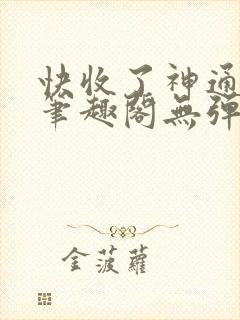 快收了神通
笔趣阁無弹
金菠蘿